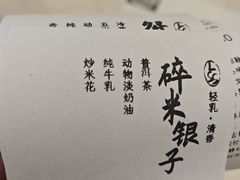 轻乳·清香
碎米银子
普洱茶
动物淡奶油
纯牛乳
炒米花